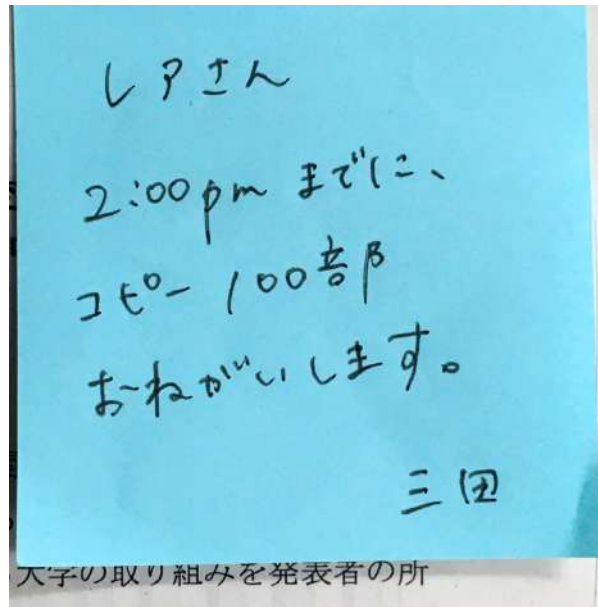 レアさん
2:00pm までに、
コピー 100部
おねがいします。
三田
大学の取り組みを発表者の所